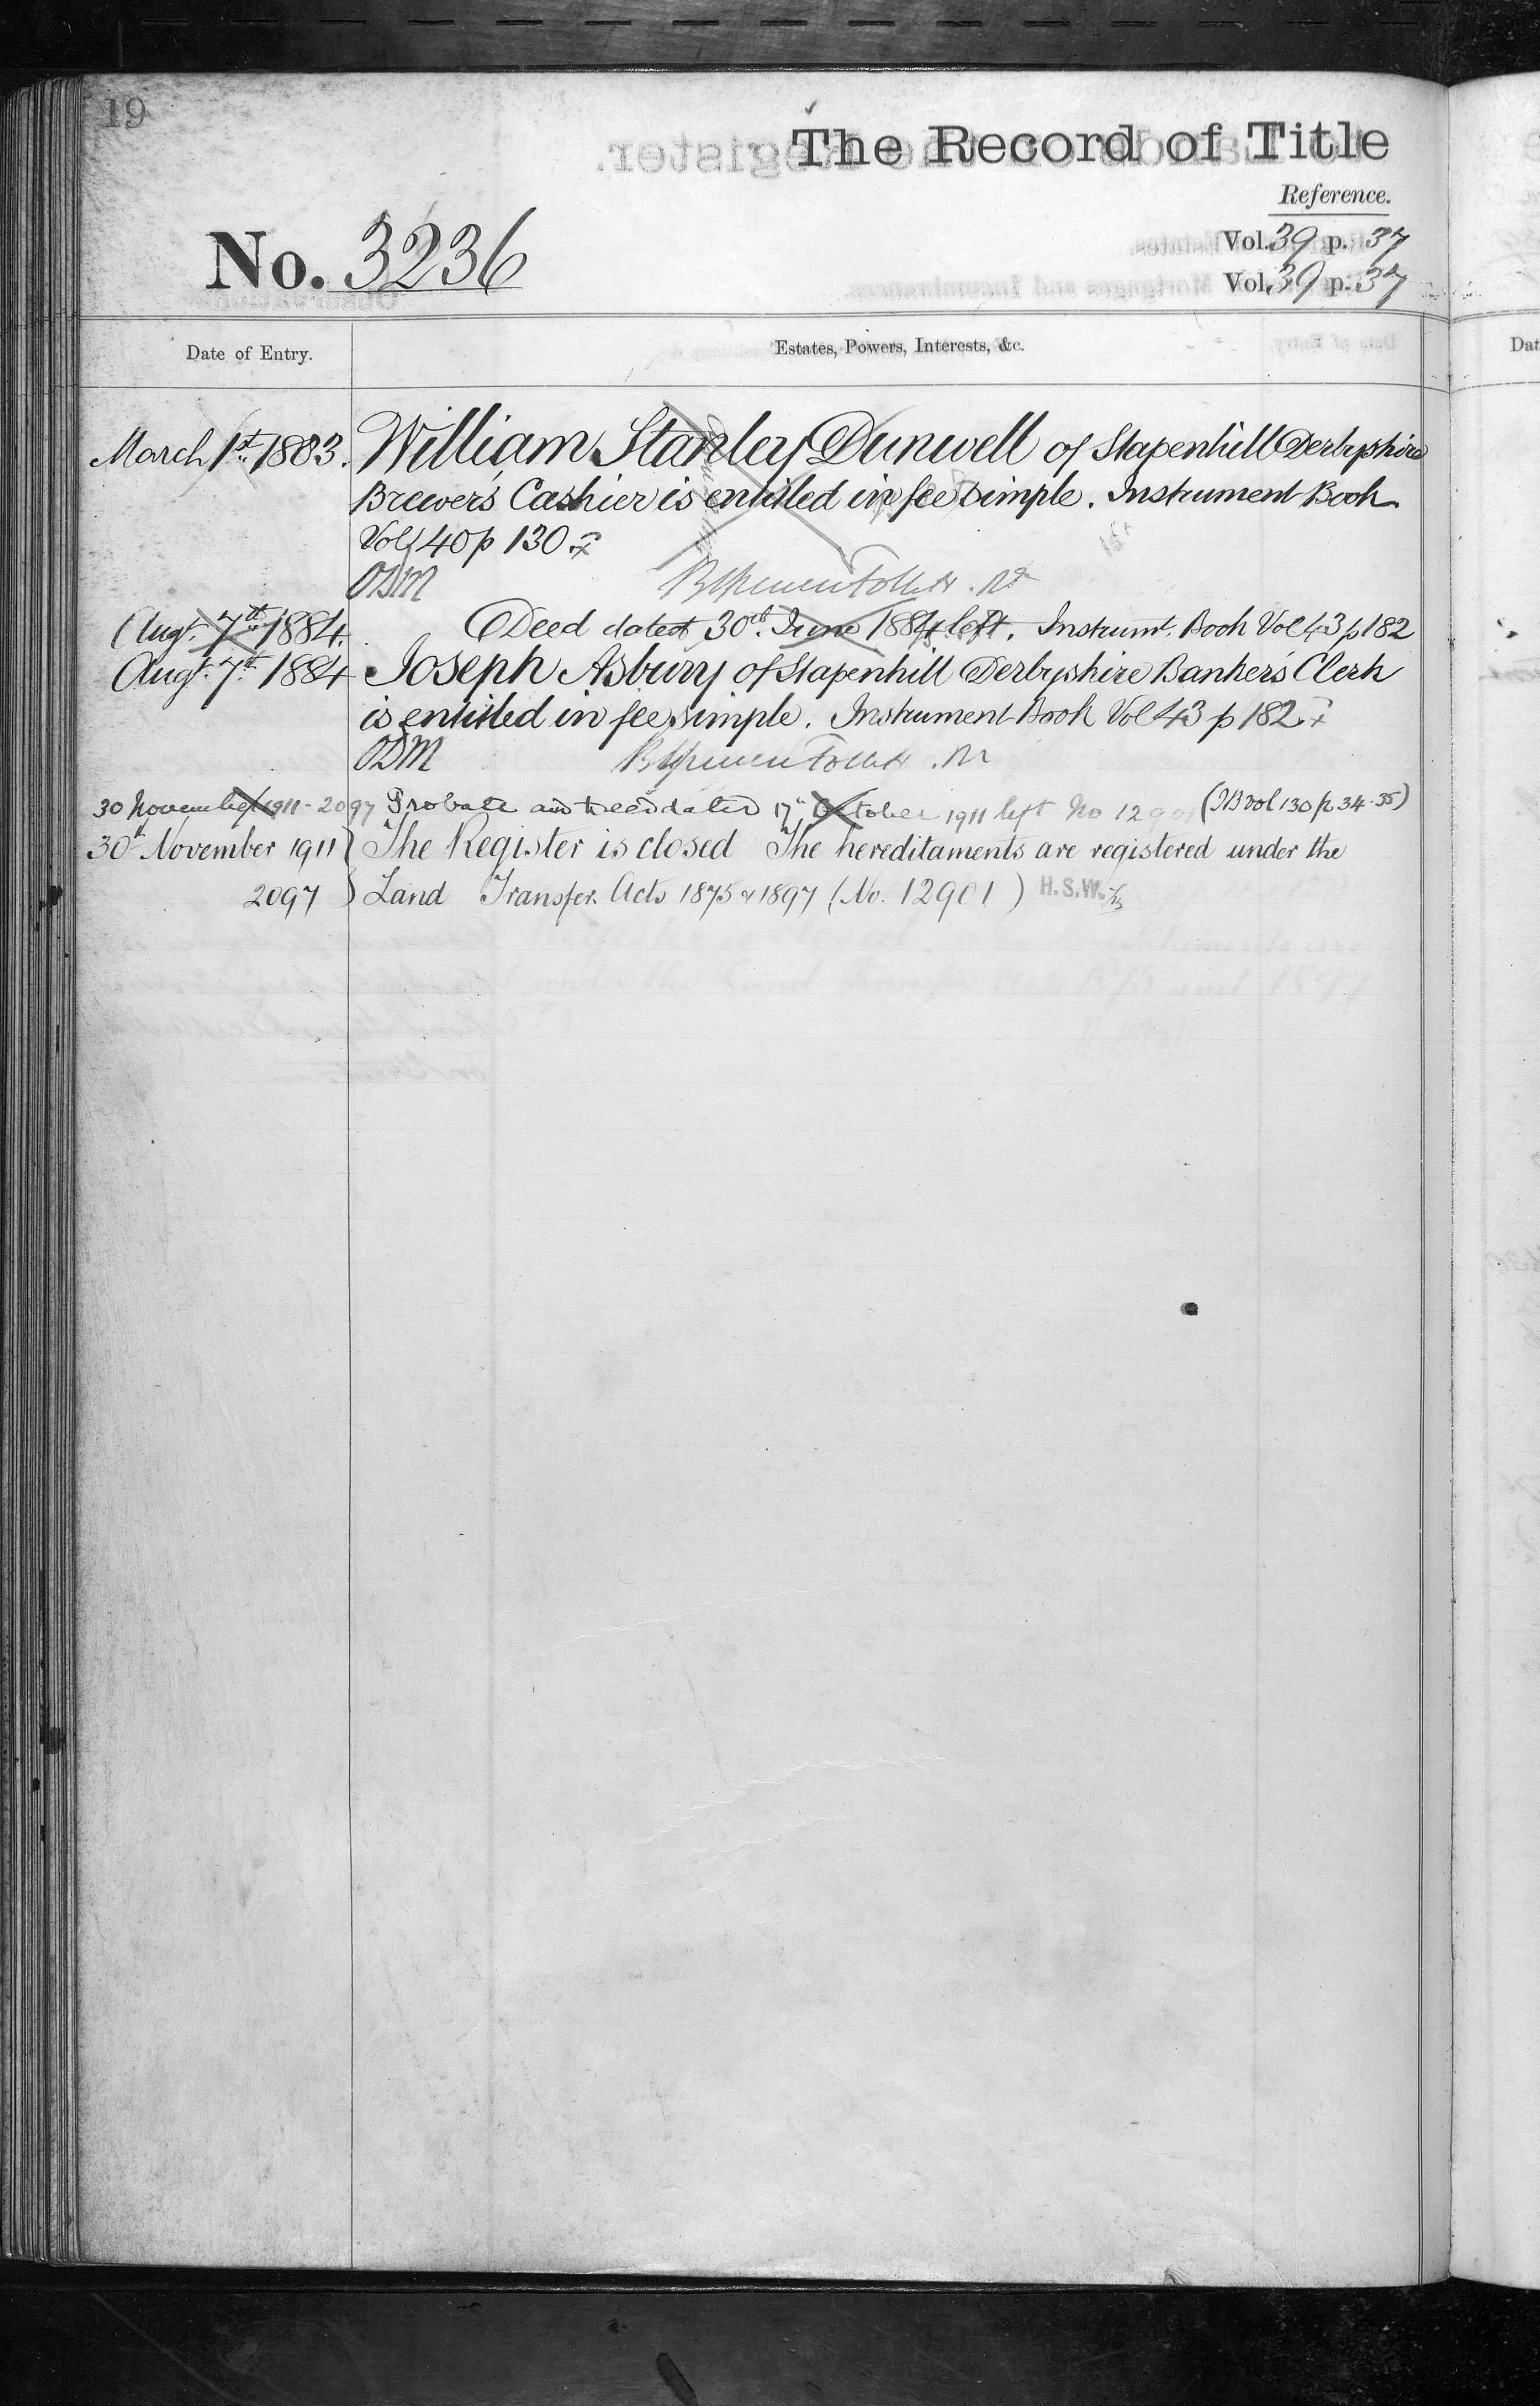 19
The Record of Title
Reference.
No. 3236
Vol. 39 p. 37
Vol. 39 p. 37
Date of Entry. Estates, Powers, Interests, &c.
March 1st 1883. William Stanley Dunwell of Stapenhill Derbyshire
Brewer's Cashier is entitled in fee simple. Instrument Book
Vol 40 p 130
ODM
Augt. 7th 1884. Deed dated 30th June 1884 left. Instrumt. Book Vol 43 p 182
Augt. 7th 1884 Joseph Asbury of Stapenhill Derbyshire Banker's Clerk
is entitled in fee simple. Instrument Book Vol 43 p 182
ODM
30 November 1911 - 2097 Probate and deed dated 17th October 1911 left No 12901 (IB vol 130 p 34-35)
30th November 1911 The Register is closed The hereditaments are registered under the
2097 Land Transfer Acts 1875 & 1897 (No. 12901) H.S.W.